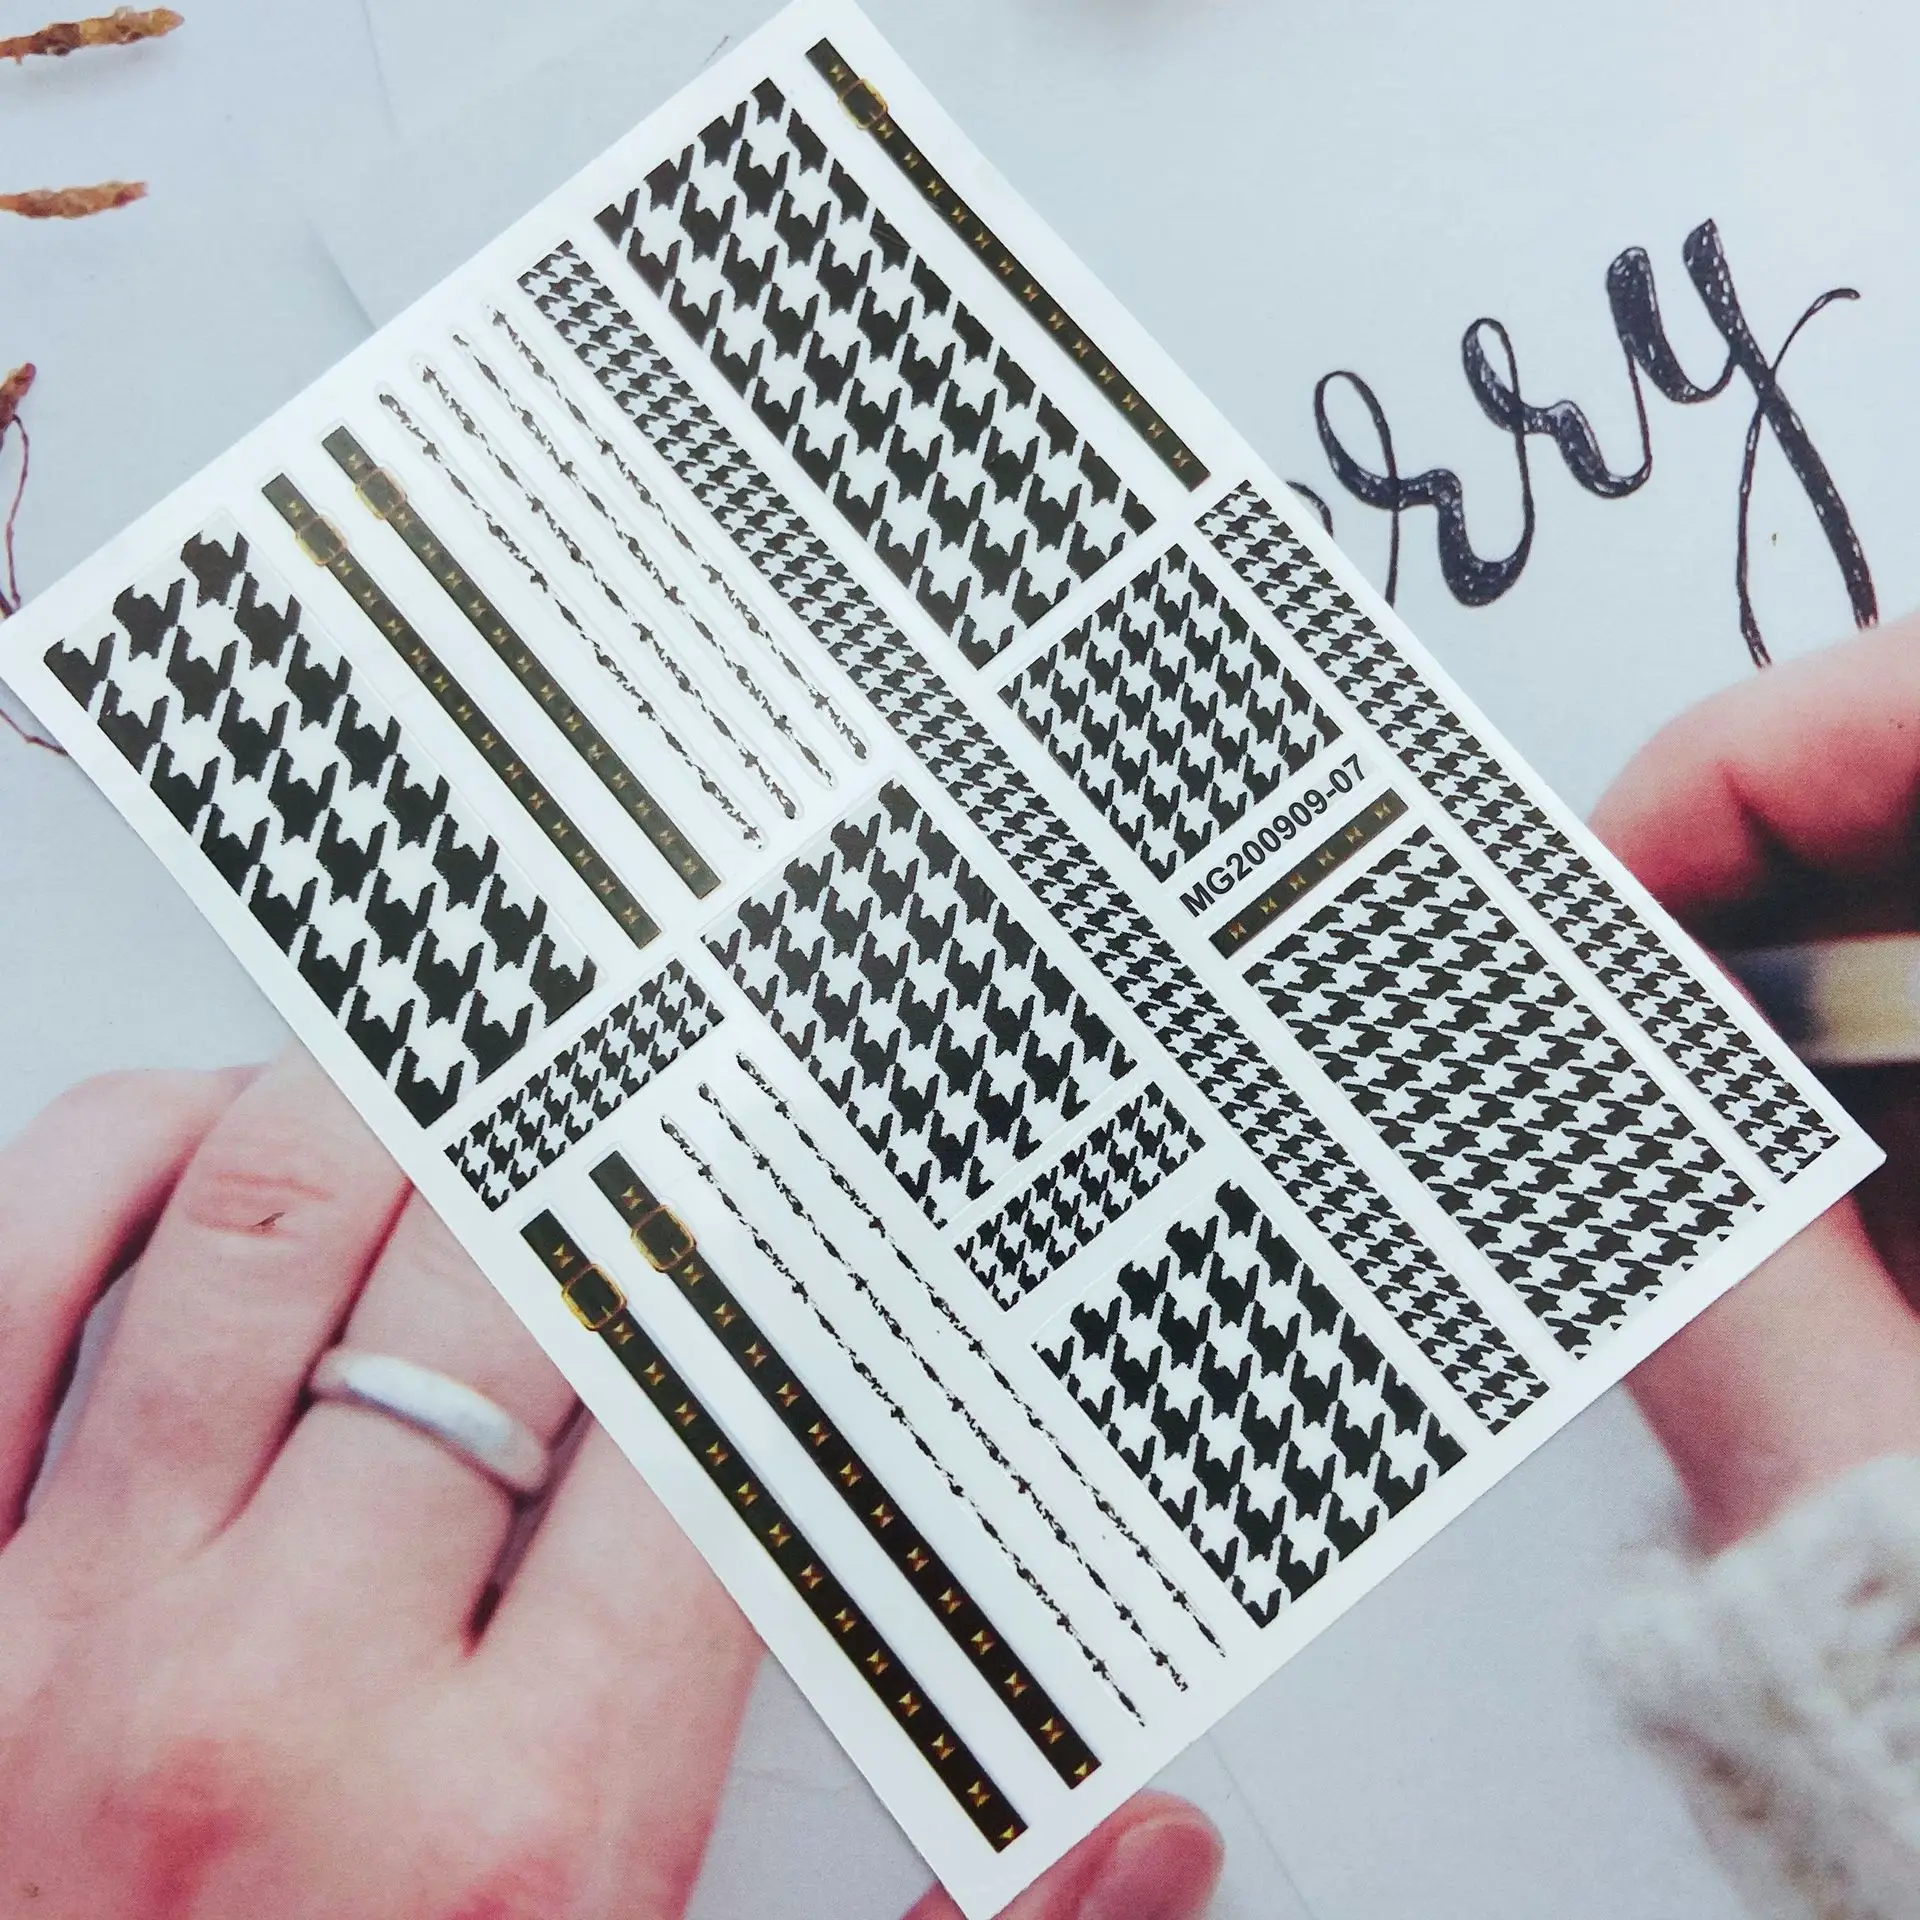 rry
MG200909-07